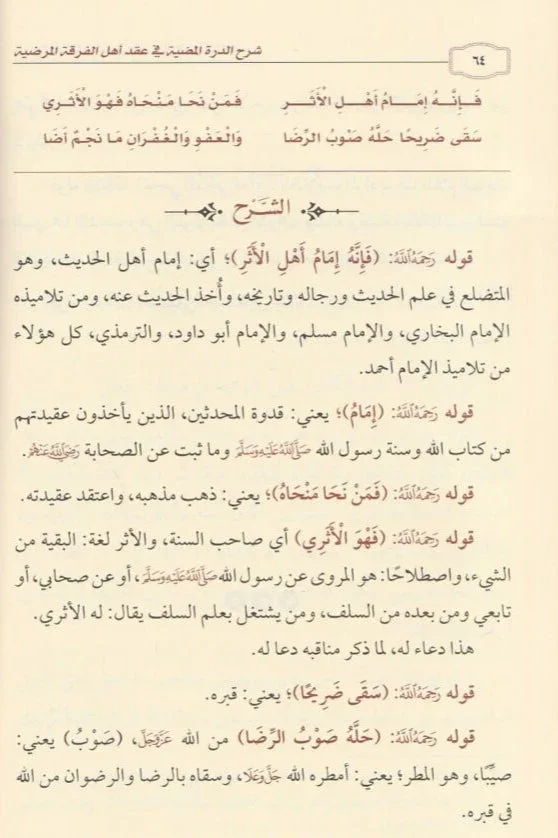 ٦٤
شرح الدرة المضية في عقد أهل الفرقة المرضية
فَإِنَّهُ إِمَامُ أَهْلِ الْأَثَرِ فَمَنْ نَحَا مَنْحَاهُ فَهْوَ الْأَثَرِي
سَقَى ضَرِيحًا حَلَّهُ صَوْبُ الرِّضَا وَالْعَفْوِ وَالْغُفْرَانِ مَا نَجْمٌ أَضَا
الشَّرْح
قوله رَحِمَهُ اللَّهُ: (فَإِنَّهُ إِمَامُ أَهْلِ الْأَثَرِ)؛ أي: إمام أهل الحديث، وهو
المتضلع في علم الحديث ورجاله وتاريخه، وأُخذ الحديث عنه، ومن تلاميذه
الإمام البخاري، والإمام مسلم، والإمام أبو داود، والترمذي، كل هؤلاء
من تلاميذ الإمام أحمد.
قوله رَحِمَهُ اللَّهُ: (إِمَامُ)؛ يعني: قدوة المحدثين، الذين يأخذون عقيدتهم
من كتاب الله وسنة رسول الله صَلَّى اللَّهُ عَلَيْهِ وَسَلَّمَ وما ثبت عن الصحابة رَضِيَ اللَّهُ عَنْهُمْ.
قوله رَحِمَهُ اللَّهُ: (فَمَنْ نَحَا مَنْحَاهُ)؛ يعني: ذهب مذهبه، واعتقد عقيدته.
قوله رَحِمَهُ اللَّهُ: (فَهْوَ الْأَثَرِي) أي صاحب السنة، والأثر لغة: البقية من
الشيء، واصطلاحًا: هو المروى عن رسول الله صَلَّى اللَّهُ عَلَيْهِ وَسَلَّمَ، أو عن صحابي، أو
تابعي ومن بعده من السلف، ومن يشتغل بعلم السلف يقال: له الأثري.
هذا دعاء له، لما ذكر مناقبه دعا له.
قوله رَحِمَهُ اللَّهُ: (سَقَى ضَرِيحًا)؛ يعني: قبره.
قوله رَحِمَهُ اللَّهُ: (حَلَّهُ صَوْبُ الرِّضَا) من الله عَزَّ وَجَلَّ، (صَوْبُ) يعني:
صيِّبًا، وهو المطر؛ يعني: أمطره الله جَلَّ وَعَلَا، وسقاه بالرضا والرضوان من الله
في قبره.